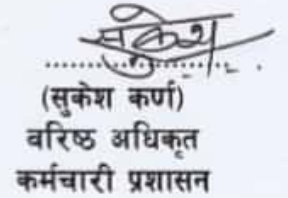 सुकेश
(सुकेश कर्ण)
वरिष्ठ अधिकृत
कर्मचारी प्रशासन